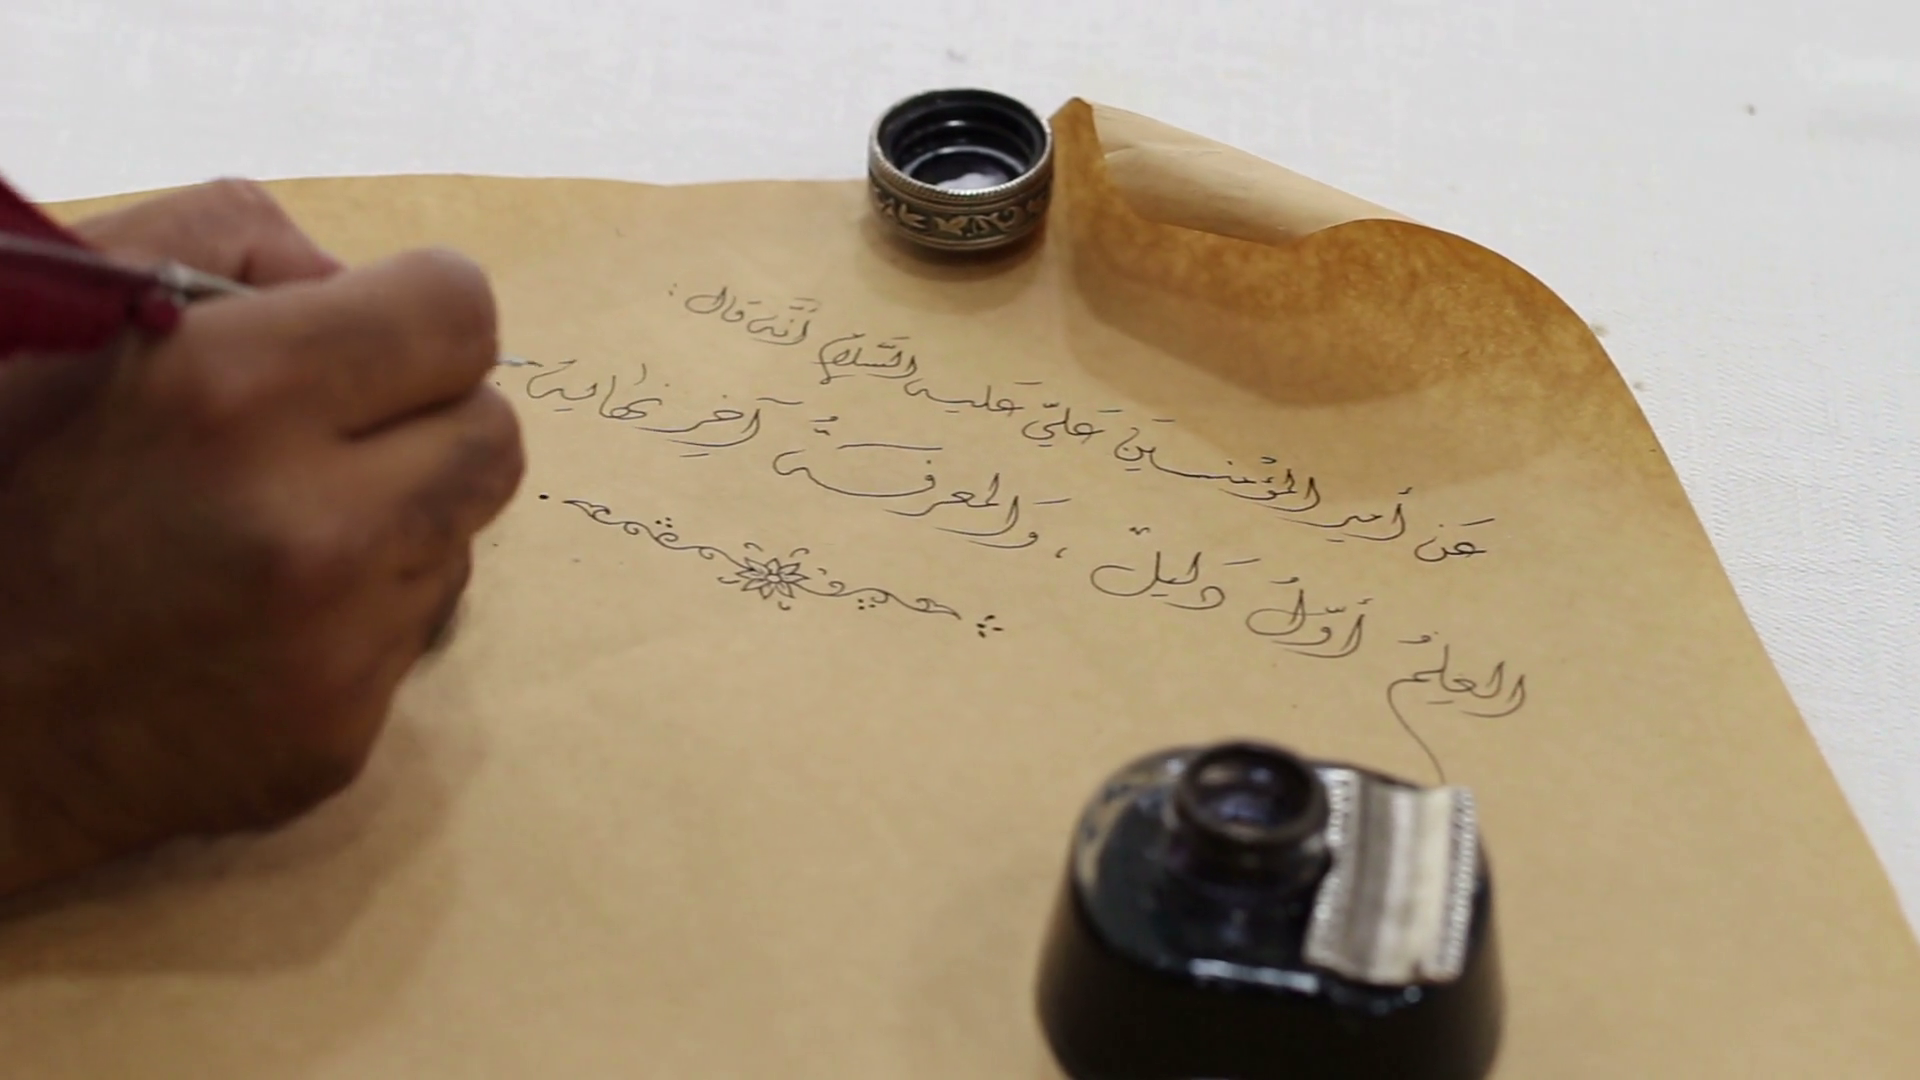 عَن أمير المؤْمنسينَ عَليّ عَليه السَّلامُ أنَّهُ قَال :
العِلمُ أوّلُ دَليلٌ ، وَالمعرفَةُ آخِر نهايَة .